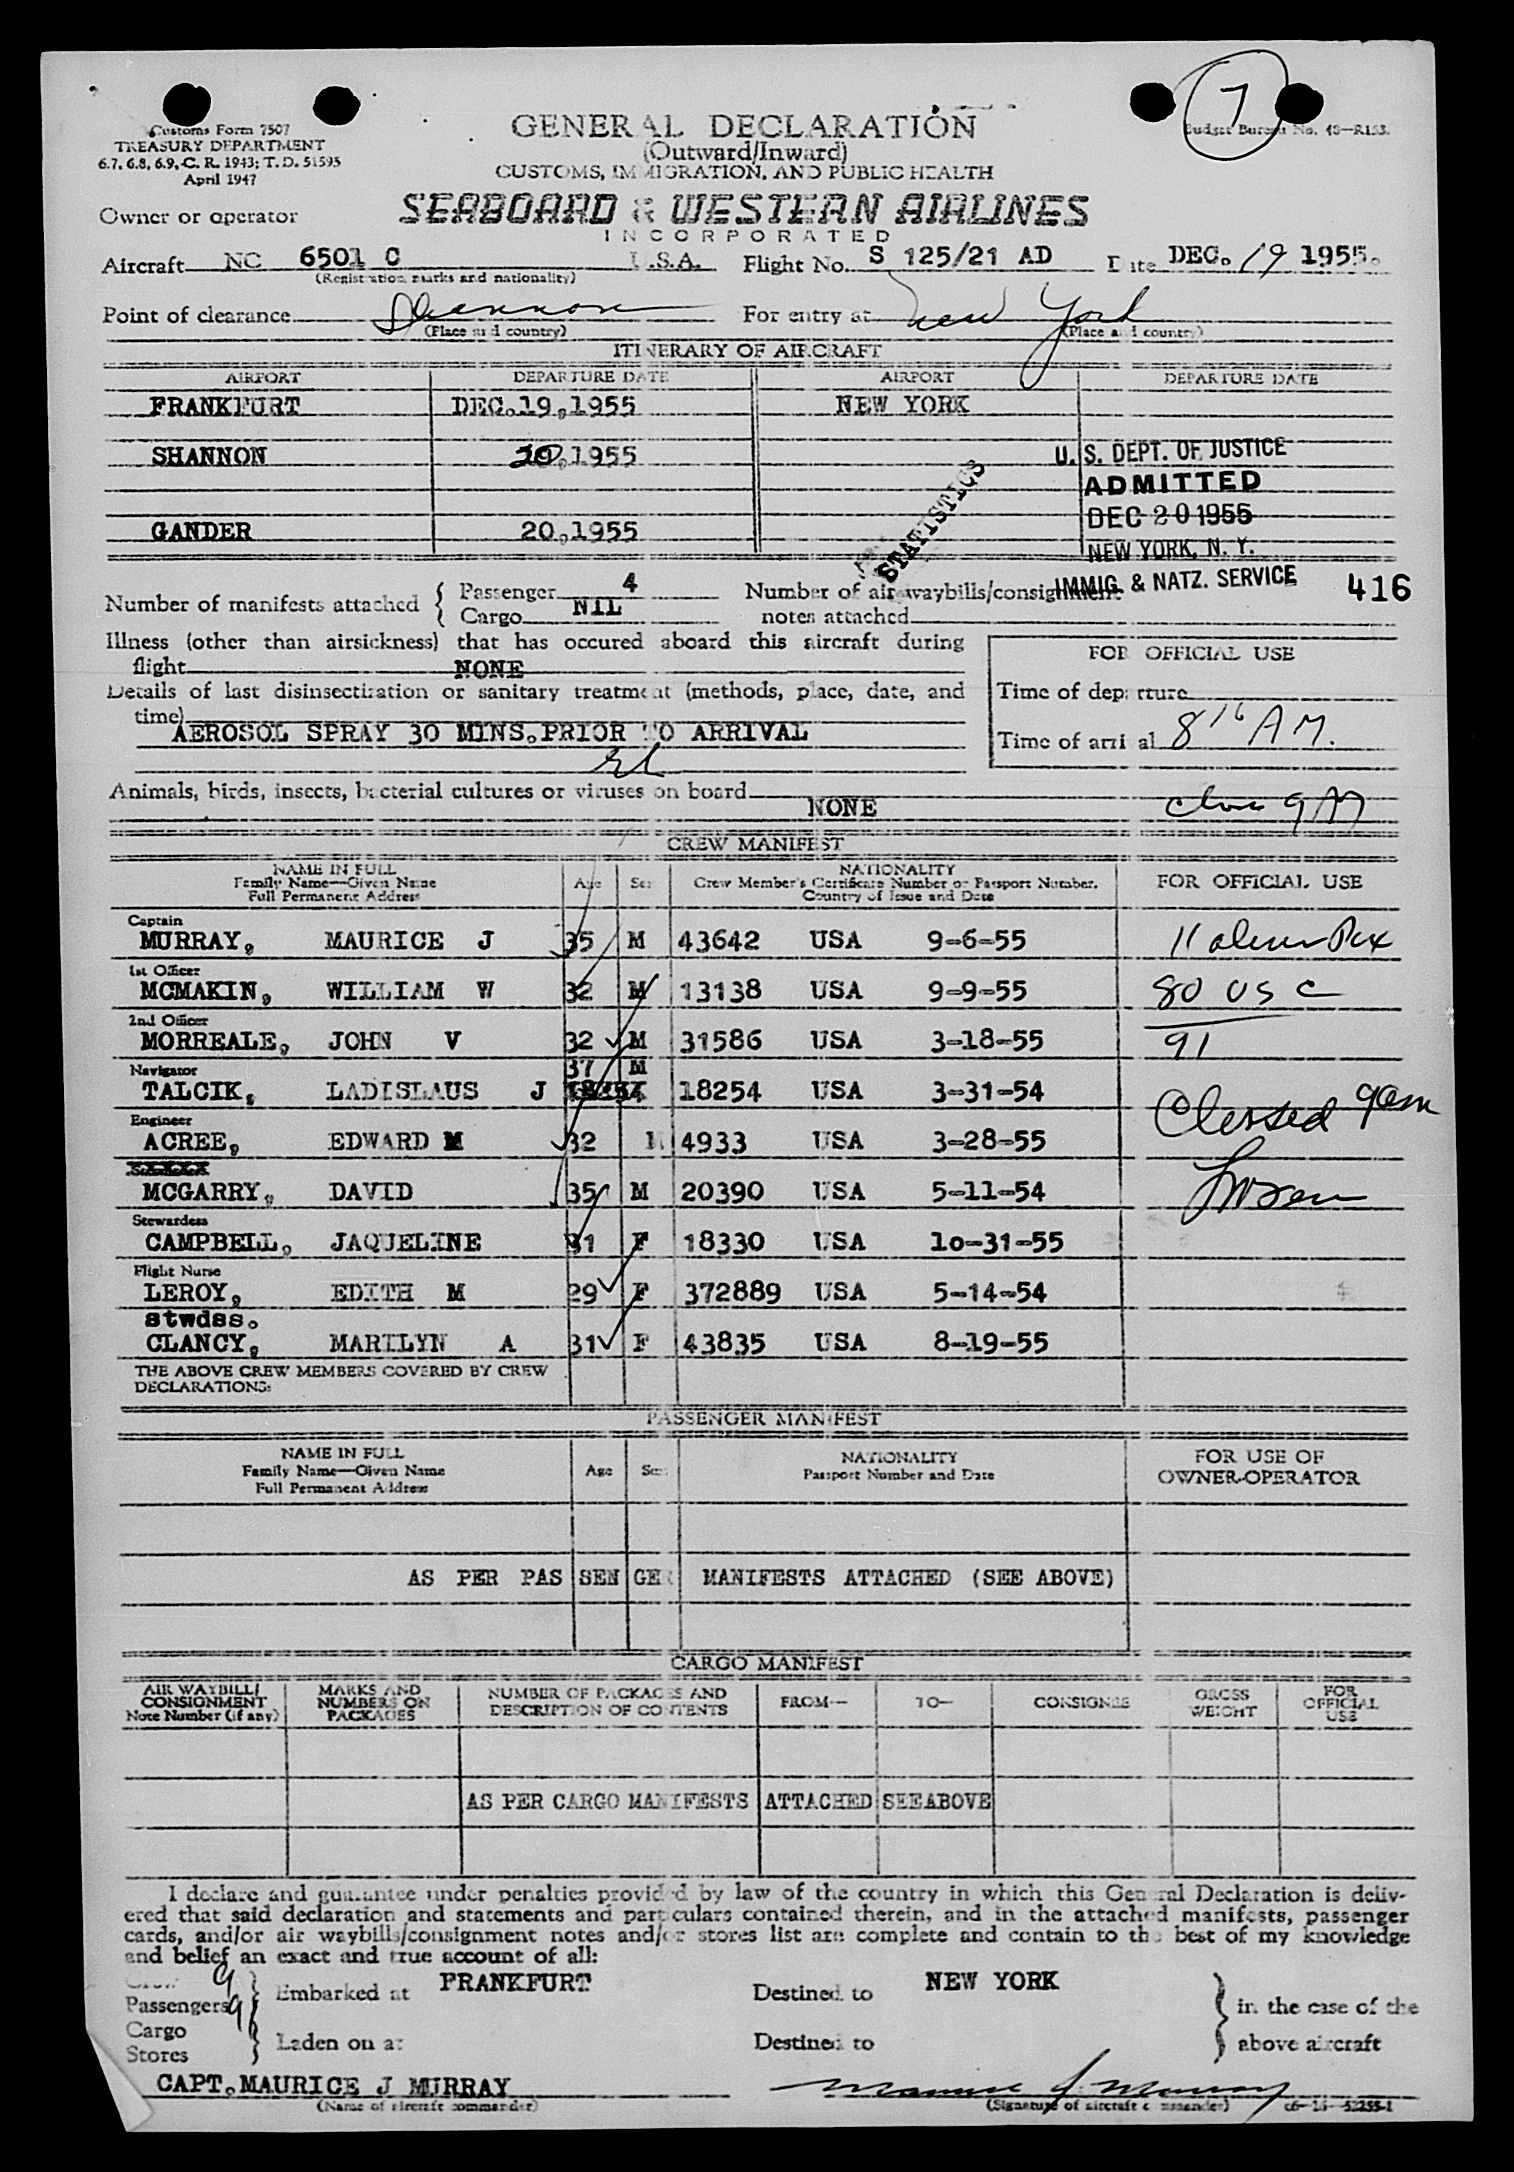 7
Customs Form 7507
TREASURY DEPARTMENT
6.7, 6.8, 6.9, C. R. 1943; T. D. 51595
April 1947
GENERAL DECLARATION
(Outward/Inward)
CUSTOMS, IMMIGRATION, AND PUBLIC HEALTH
Budget Bureau No. 48—R153.
Owner or operator SEABOARD & WESTERN AIRLINES
INCORPORATED
Aircraft NC 6501 C U.S.A. Flight No. S 125/21 AD Date DEC. 19 1955.
(Registration marks and nationality)
Point of clearance Shannon For entry at New York
(Place and country) (Place and country)
ITINERARY OF AIRCRAFT
AIRPORT DEPARTURE DATE AIRPORT DEPARTURE DATE
FRANKFURT DEC.19,1955 NEW YORK
SHANNON 20,1955
GANDER 20,1955
U. S. DEPT. OF JUSTICE
ADMITTED
DEC 20 1955
NEW YORK, N. Y.
IMMIG. & NATZ. SERVICE 416
STATISTICS
Number of manifests attached { Passenger 4
Cargo NIL
Number of air waybills/consignment
notes attached
Illness (other than airsickness) that has occured aboard this aircraft during
flight NONE
Details of last disinsectization or sanitary treatment (methods, place, date, and
time)
AEROSOL SPRAY 30 MINS.PRIOR TO ARRIVAL
FOR OFFICIAL USE
Time of departure
Time of arrival 8 16 A M.
Animals, birds, insects, bacterial cultures or viruses on board NONE
9 AM
CREW MANIFEST
NAME IN FULL
Family Name—Given Name
Full Permanent Address
Age Sex
NATIONALITY
Crew Member's Certificate Number or Passport Number,
Country of Issue and Date
FOR OFFICIAL USE
Captain
MURRAY, MAURICE J 35 M 43642 USA 9-6-55 11
1st Officer
MCMAKIN, WILLIAM W 32 M 13138 USA 9-9-55 80 USC
2nd Officer
MORREALE, JOHN V 32 M 31586 USA 3-18-55 91
Navigator 37 M
TALCIK, LADISLAUS J 18254 USA 3-31-54
Engineer
ACREE, EDWARD M 32 M 4933 USA 3-28-55
MCGARRY, DAVID 35 M 20390 USA 5-11-54
Stewardess
CAMPBELL, JAQUELINE 31 F 18330 USA 10-31-55
Flight Nurse
LEROY, EDITH M 29 F 372889 USA 5-14-54
stwdss.
CLANCY, MARILYN A 31 F 43835 USA 8-19-55
THE ABOVE CREW MEMBERS COVERED BY CREW
DECLARATIONS:
PASSENGER MANIFEST
NAME IN FULL
Family Name—Given Name
Full Permanent Address
Age Sex
NATIONALITY
Passport Number and Date
FOR USE OF
OWNER-OPERATOR
AS PER PASSENGER MANIFESTS ATTACHED (SEE ABOVE)
CARGO MANIFEST
AIR WAYBILL/
CONSIGNMENT
Note Number (if any)
MARKS AND
NUMBERS ON
PACKAGES
NUMBER OF PACKAGES AND
DESCRIPTION OF CONTENTS
FROM— TO— CONSIGNEE
GROSS
WEIGHT
FOR
OFFICIAL
USE
AS PER CARGO MANIFESTS ATTACHED SEEABOVE
I declare and guarantee under penalties provided by law of the country in which this General Declaration is deliv-
ered that said declaration and statements and particulars contained therein, and in the attached manifests, passenger
cards, and/or air waybills/consignment notes and/or stores list are complete and contain to the best of my knowledge
and belief an exact and true account of all:
Crew 9
Passengers 91
Cargo
Stores
Embarked at FRANKFURT Destined to NEW YORK
Laden on at Destined to
in the case of the
above aircraft
CAPT.MAURICE J MURRAY Maurice J. Murray
(Name of aircraft commander) (Signature of aircraft commander)